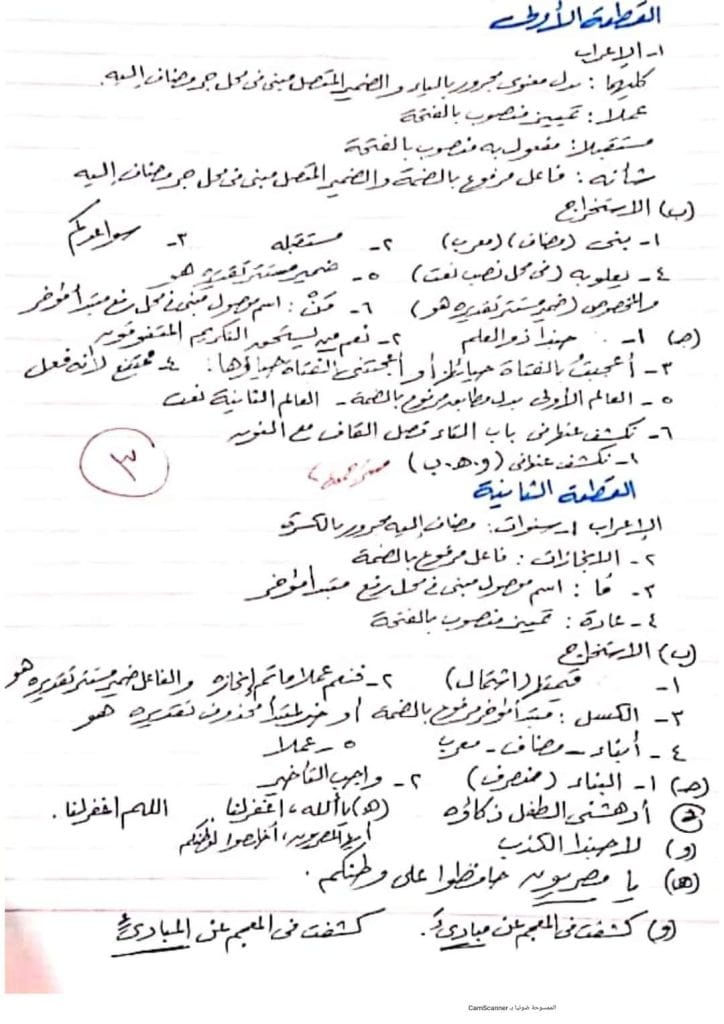 القطعة الأولى
١- الإعراب
كليهما : بدل معنوى مجرور بالياء والضمير المتصل مبنى فى محل جر مضاف إليه.
عملا : تمييز منصوب بالفتحة
مستقبلا : مفعول به منصوب بالفتحة
شأنه : فاعل مرفوع بالضمة والضمير المتصل مبنى فى محل جر مضاف إليه
(ب) الاستخراج
١- بنى (مضاف) (معرب) ٢- مستقبله ٣- سواعدكم
٤- يعلو به (فى محل نصب نعت) ٥- ضمير مستتر تقديره هو
والمخصوص (ضمير مستتر تقديره هو) ٦- مَنْ : اسم موصول مبنى فى محل رفع مبتدأ مؤخر
(جـ) ١- حبذا ذو العلم ٢- نعم من يستحق التكريم المتفوقون
٣- أعجبتُ بالفتاة حيائها أو أعجبتنى الفتاة حياؤها : ٤- ممتنع لأنه فعل
٥- العالم الأولى بدل مطابق مرفوع بالضمة - العالم الثانية نعت
٦- نكشف عنها فى باب التاء فصل القاف مع النون
١- نكشف عنها فى (و.هـ.ب)
٣
القطعة الثانية
الإعراب ١- سنوات : مضاف إليه مجرور بالكسرة
٢- الانجازات : فاعل مرفوع بالضمة
٣- مَا : اسم موصول مبنى فى محل رفع مبتدأ مؤخر
٤- عادة : تمييز منصوب بالفتحة
(ب) الاستخراج
١- قيمتها (اشتمال) ٢- فنعم عملا ما تم إنجازه والفاعل ضمير مستتر تقديره هو
٣- الكسل : مبتدأ مؤخر مرفوع بالضمة أو خبر لمبتدأ محذوف تقديره هو
٤- أبناء - مضاف - معرب ٥- عملا
(جـ) ١- البناء (منصرف) ٢- واجب التأخير
أدهشنى الطفل ذكاؤه (هـ) يا ألله، اغفر لنا. اللهم اغفر لنا.
(و) لا حبذا الكذب أيها المصريون، أخلصوا لوطنكم
(هـ) يا مصريون حافظوا على وطنكم.
(و) كشفت فى المعجم عن مبادئَ. كشفت فى المعجم عن المبادئِ
الممسوحة ضوئيا بـ CamScanner